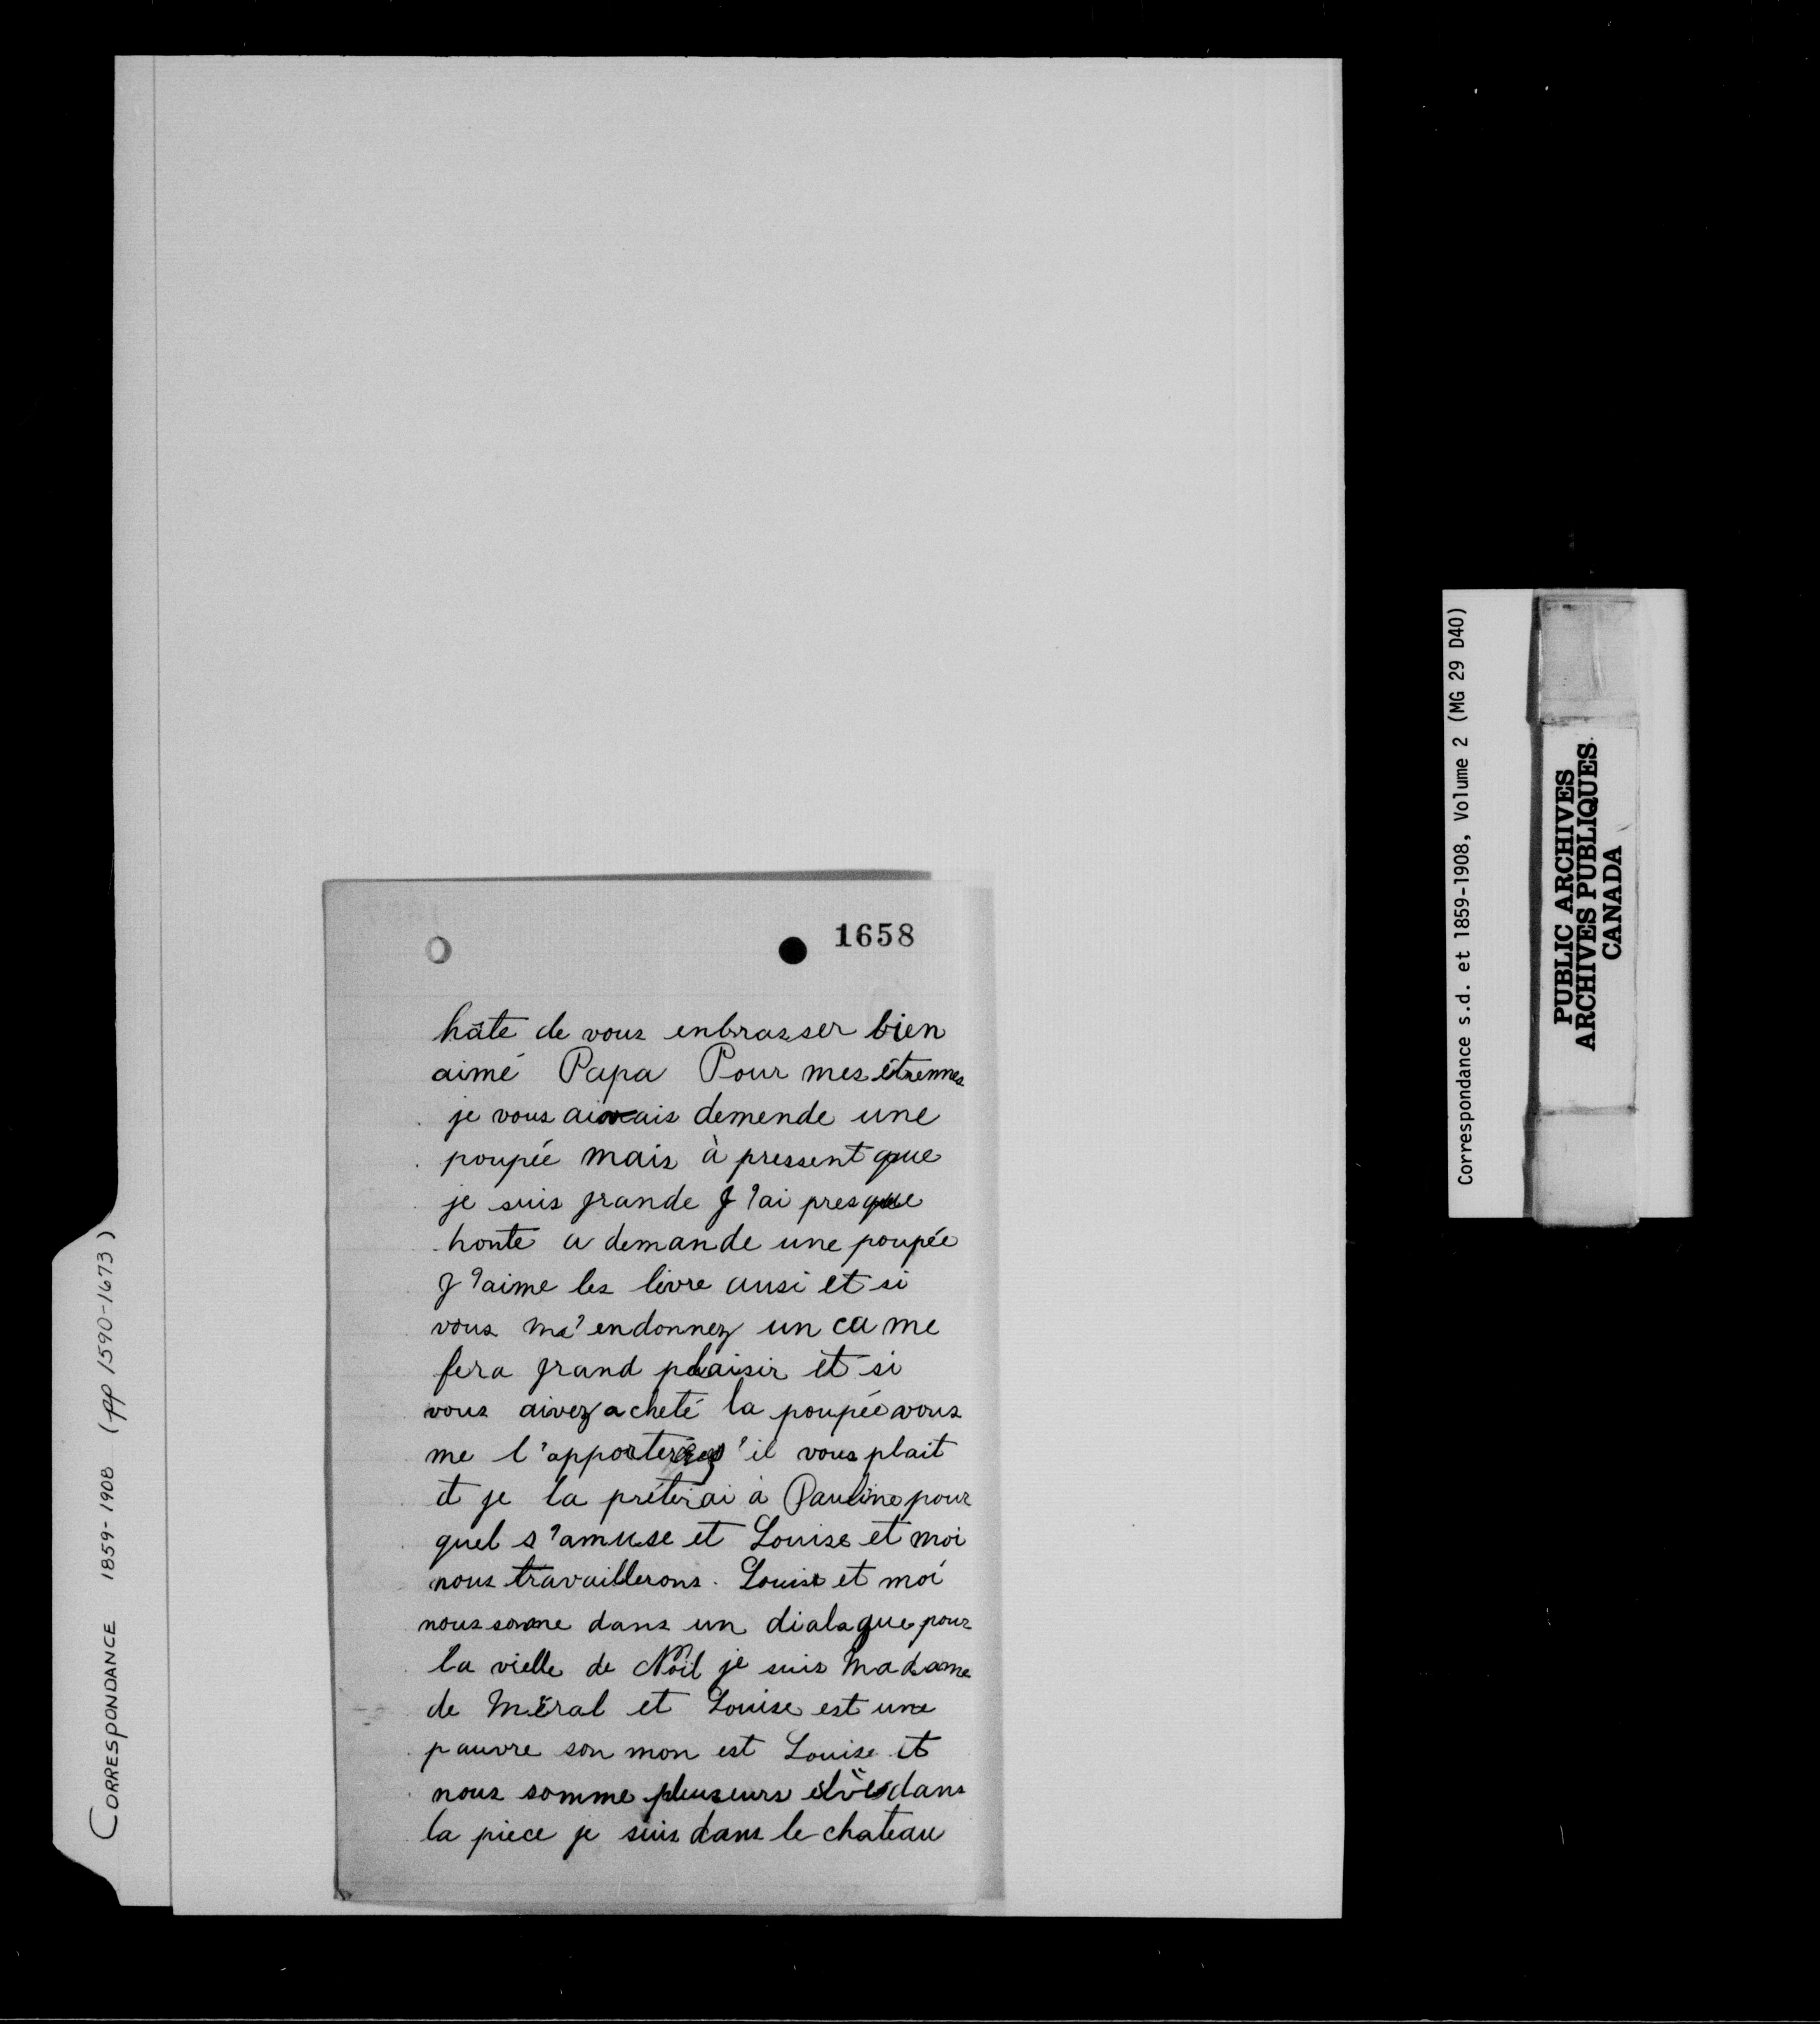 1658
hâte de vous enbrasser bien
aimé Papa Pour mes étrennes
je vous aivais demende une
poupée mais à pressent que
je suis grande J'ai presque
honte a demande une poupée
J'aime les livre ausi et si
vous me'endonnez un ca me
fera grand plaisir et si
vous aivez acheté la poupée vous
me l'apporterez s'il vous plait
et je la prêterai à Pauline pour
quel s'amuse et Louise et moi
nous travaillerons. Louise et moi
nous somme dans un dialogue pour
la vielle de Noël je suis Madame
de Méral et Louise est une
pauvre son mon est Louise et
nous somme pluseurs élèves dans
la piece je suis dans le chateau
CORRESPONDANCE 1859-1908 (pp 1590-1673)
Correspondance s.d. et 1859-1908, Volume 2 (MG 29 D40)
PUBLIC ARCHIVES
ARCHIVES PUBLIQUES
CANADA